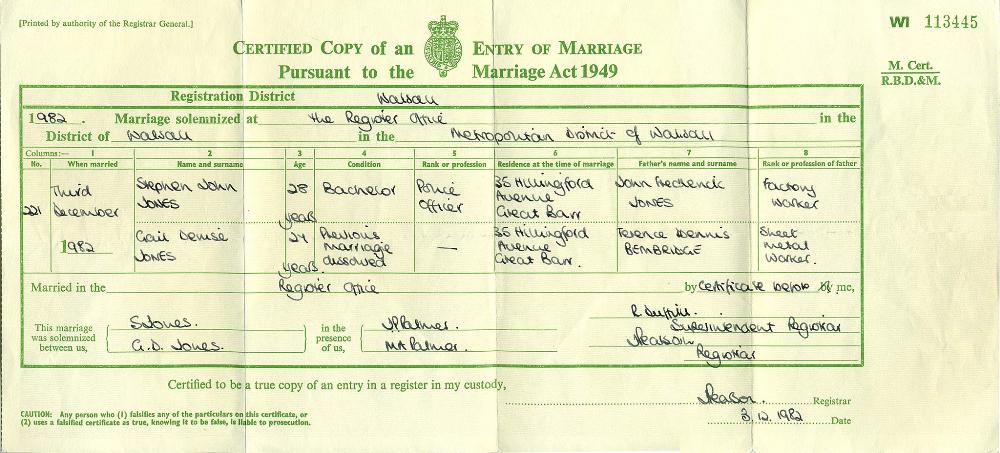 [Printed by authority of the Registrar General.]
WI 113445
CERTIFIED COPY of an ENTRY OF MARRIAGE
Pursuant to the Marriage Act 1949
M. Cert.
R.B.D.&M.
Registration District Walsall
1982. Marriage solemnized at the Register Office in the
District of Walsall in the Metropolitan District of Walsall
Columns:— 1 2 3 4 5 6 7 8
No. When married Name and surname Age Condition Rank or profession Residence at the time of marriage Father's name and surname Rank or profession of father
221 Third December 1982
Stephen John JONES 28 years Bachelor Police Officer 36 Hillingford Avenue Great Barr John Frederick JONES Factory Worker
Gail Denise JONES 24 years. Previous marriage dissolved — 36 Hillingford Avenue Great Barr. Terence Dennis BEMBRIDGE Sheet Metal Worker.
Married in the Register Office by certificate before by me,
This marriage was solemnized between us,
S Jones.
G.D. Jones.
in the presence of us,
J Palmer.
M A Palmer.
Superintendent Registrar
Registrar
Certified to be a true copy of an entry in a register in my custody,
Registrar
3.12.1982 Date
CAUTION: Any person who (1) falsifies any of the particulars on this certificate, or
(2) uses a falsified certificate as true, knowing it to be false, is liable to prosecution.